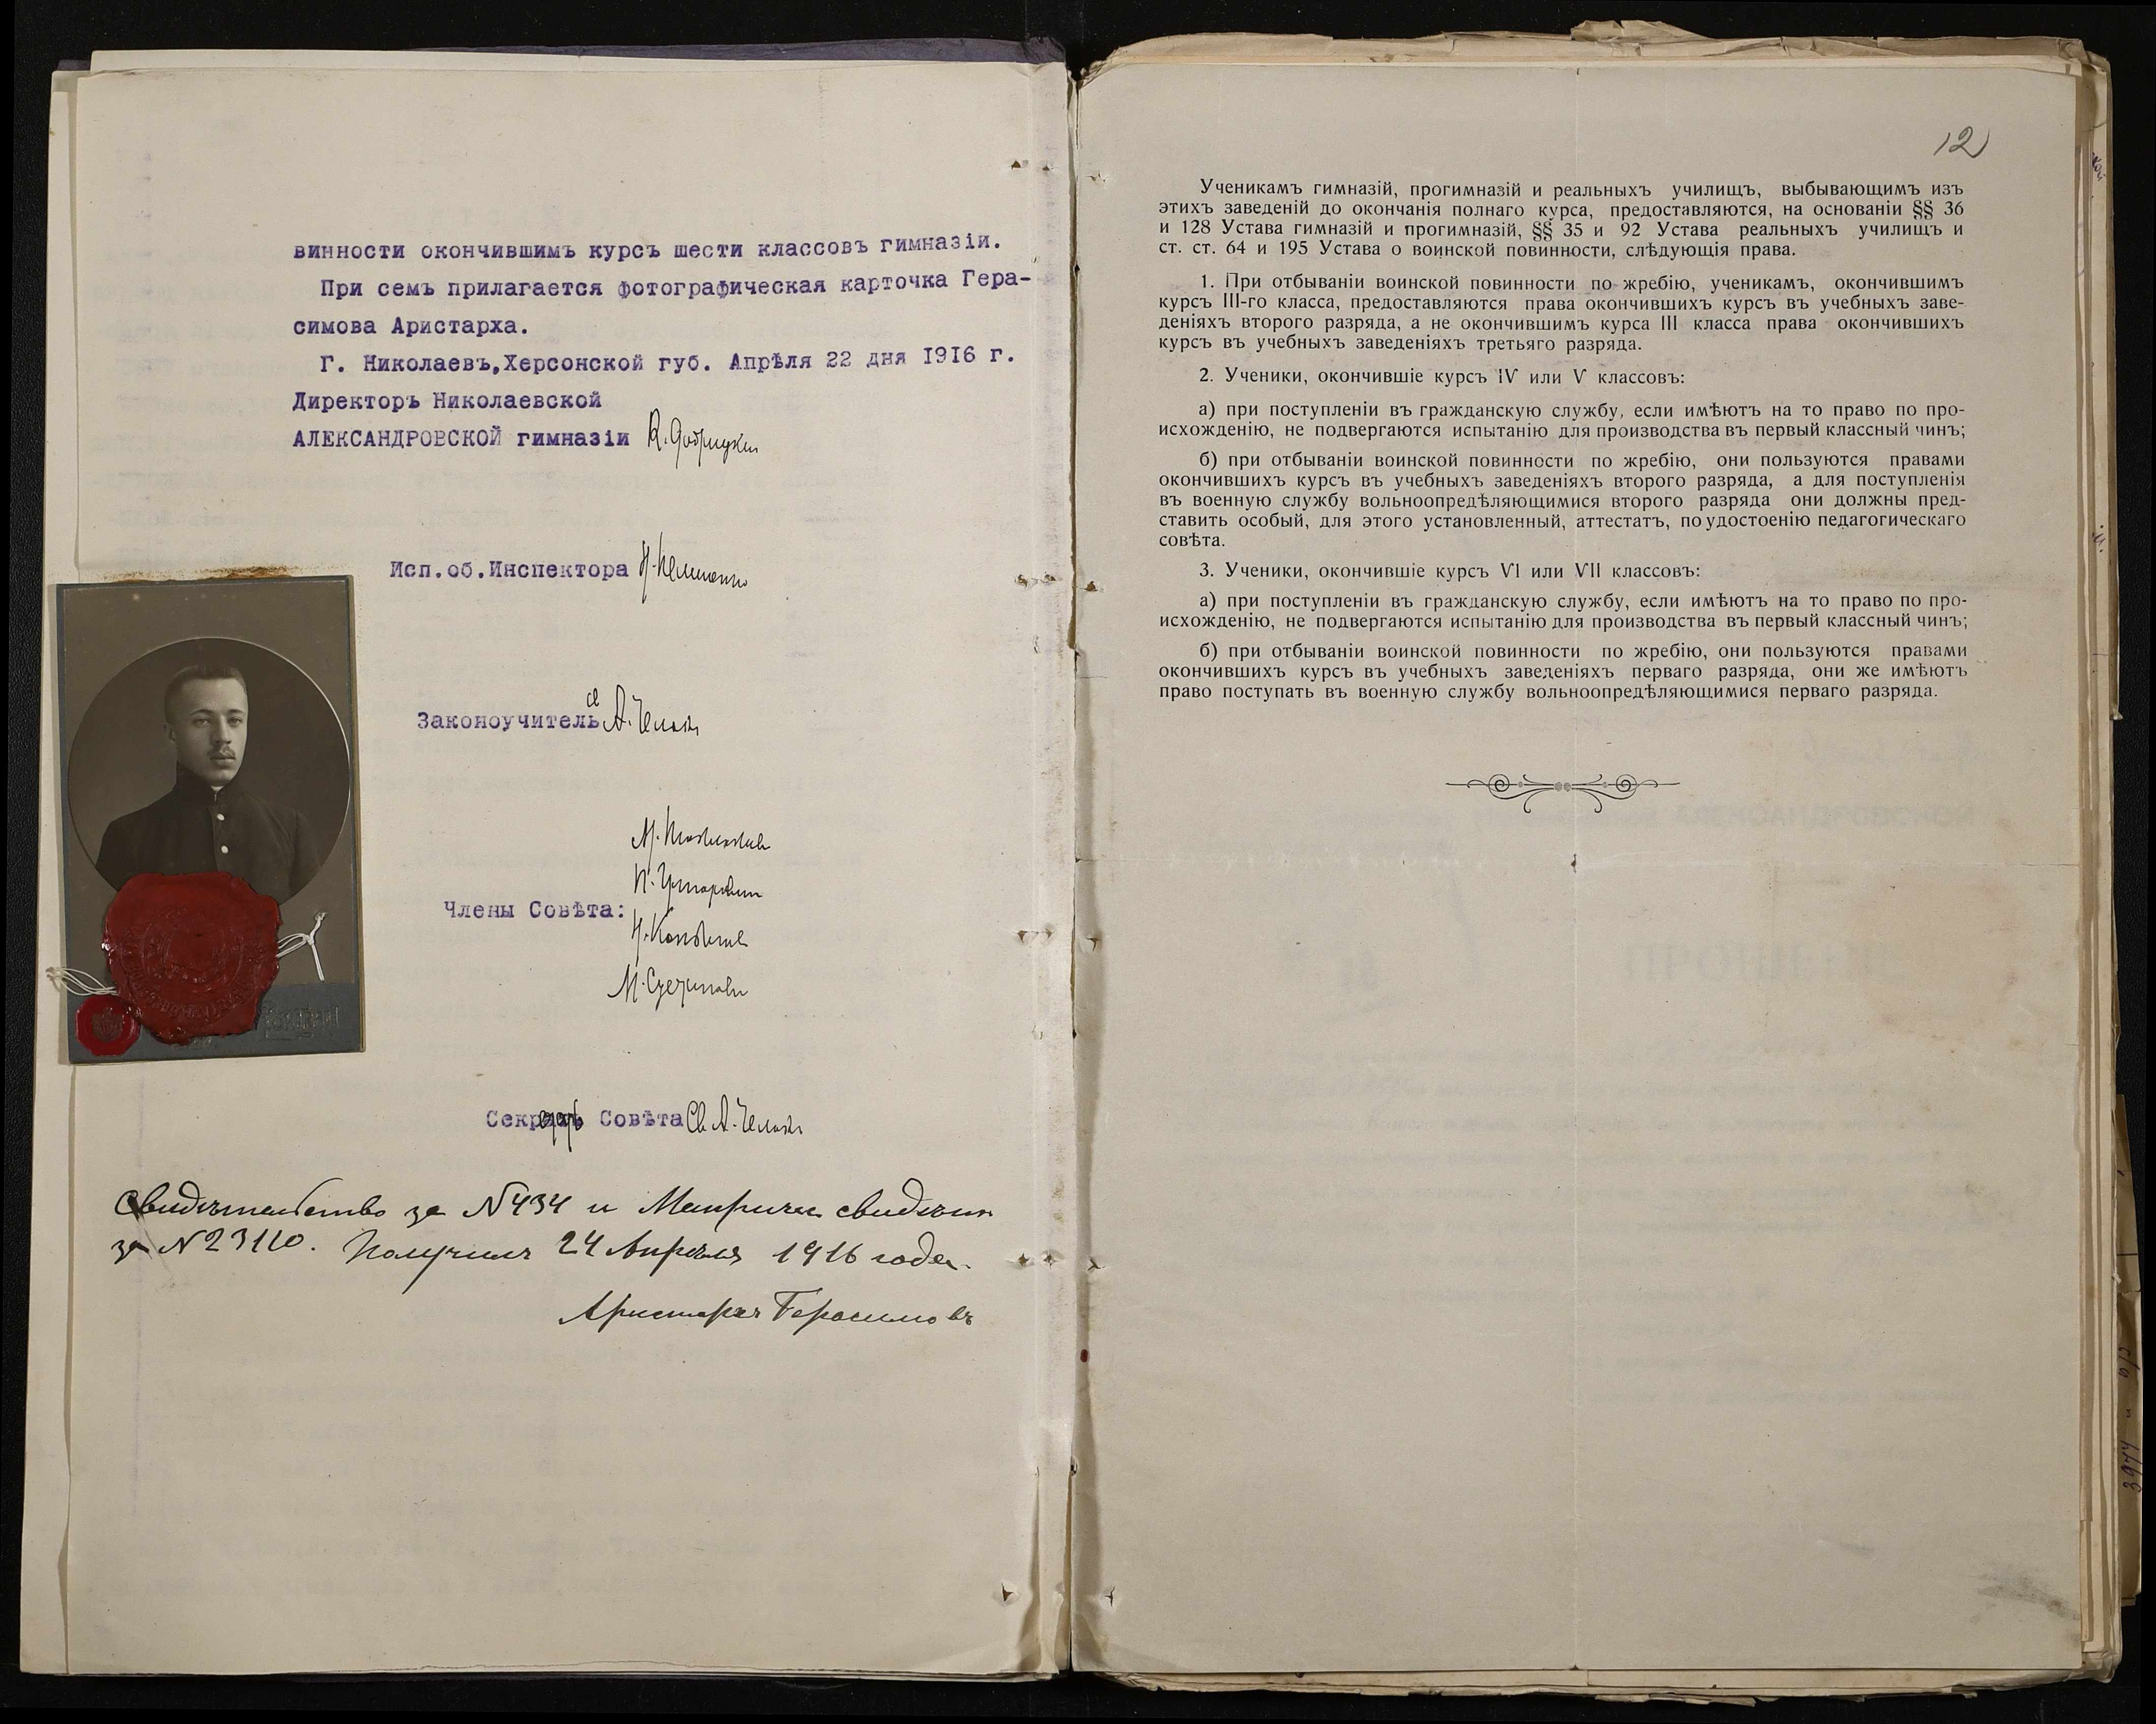 винности окончившимъ курсъ шести классовъ гимназіи.
При семъ прилагается фотографическая карточка Гера-
симова Аристарха.
Г. Николаевъ,Херсонской губ. Апрѣля 22 дня 1916 г.
Директоръ Николаевской
АЛЕКСАНДРОВСКОЙ гимназіи
Исп.об.Инспектора
Законоучитель
Члены Совѣта:
Совѣта
Свидѣтельство за N434 и
за N23110. Получилъ 24 Апрѣля 1916 года.
Аристархъ Герасимовъ
12
Ученикамъ гимназій, прогимназій и реальныхъ училищъ, выбывающимъ изъ
этихъ заведеній до окончанія полнаго курса, предоставляются, на основаніи §§ 36
и 128 Устава гимназій и прогимназій, §§ 35 и 92 Устава реальныхъ училищъ и
ст. ст. 64 и 195 Устава о воинской повинности, слѣдующія права.
1. При отбываніи воинской повинности по жребію, ученикамъ, окончившимъ
курсъ III-го класса, предоставляются права окончившихъ курсъ въ учебныхъ заве-
деніяхъ второго разряда, а не окончившимъ курса III класса права окончившихъ
курсъ въ учебныхъ заведеніяхъ третьяго разряда.
2. Ученики, окончившіе курсъ IV или V классовъ:
а) при поступленіи въ гражданскую службу, если имѣютъ на то право по про-
исхожденію, не подвергаются испытанію для производства въ первый классный чинъ;
б) при отбываніи воинской повинности по жребію, они пользуются правами
окончившихъ курсъ въ учебныхъ заведеніяхъ второго разряда, а для поступленія
въ военную службу вольноопредѣляющимися второго разряда они должны пред-
ставить особый, для этого установленный, аттестатъ, по удостоенію педагогическаго
совѣта.
3. Ученики, окончившіе курсъ VI или VII классовъ:
а) при поступленіи въ гражданскую службу, если имѣютъ на то право по про-
исхожденію, не подвергаются испытанію для производства въ первый классный чинъ;
б) при отбываніи воинской повинности по жребію, они пользуются правами
окончившихъ курсъ въ учебныхъ заведеніяхъ перваго разряда, они же имѣютъ
право поступать въ военную службу вольноопредѣляющимися перваго разряда.